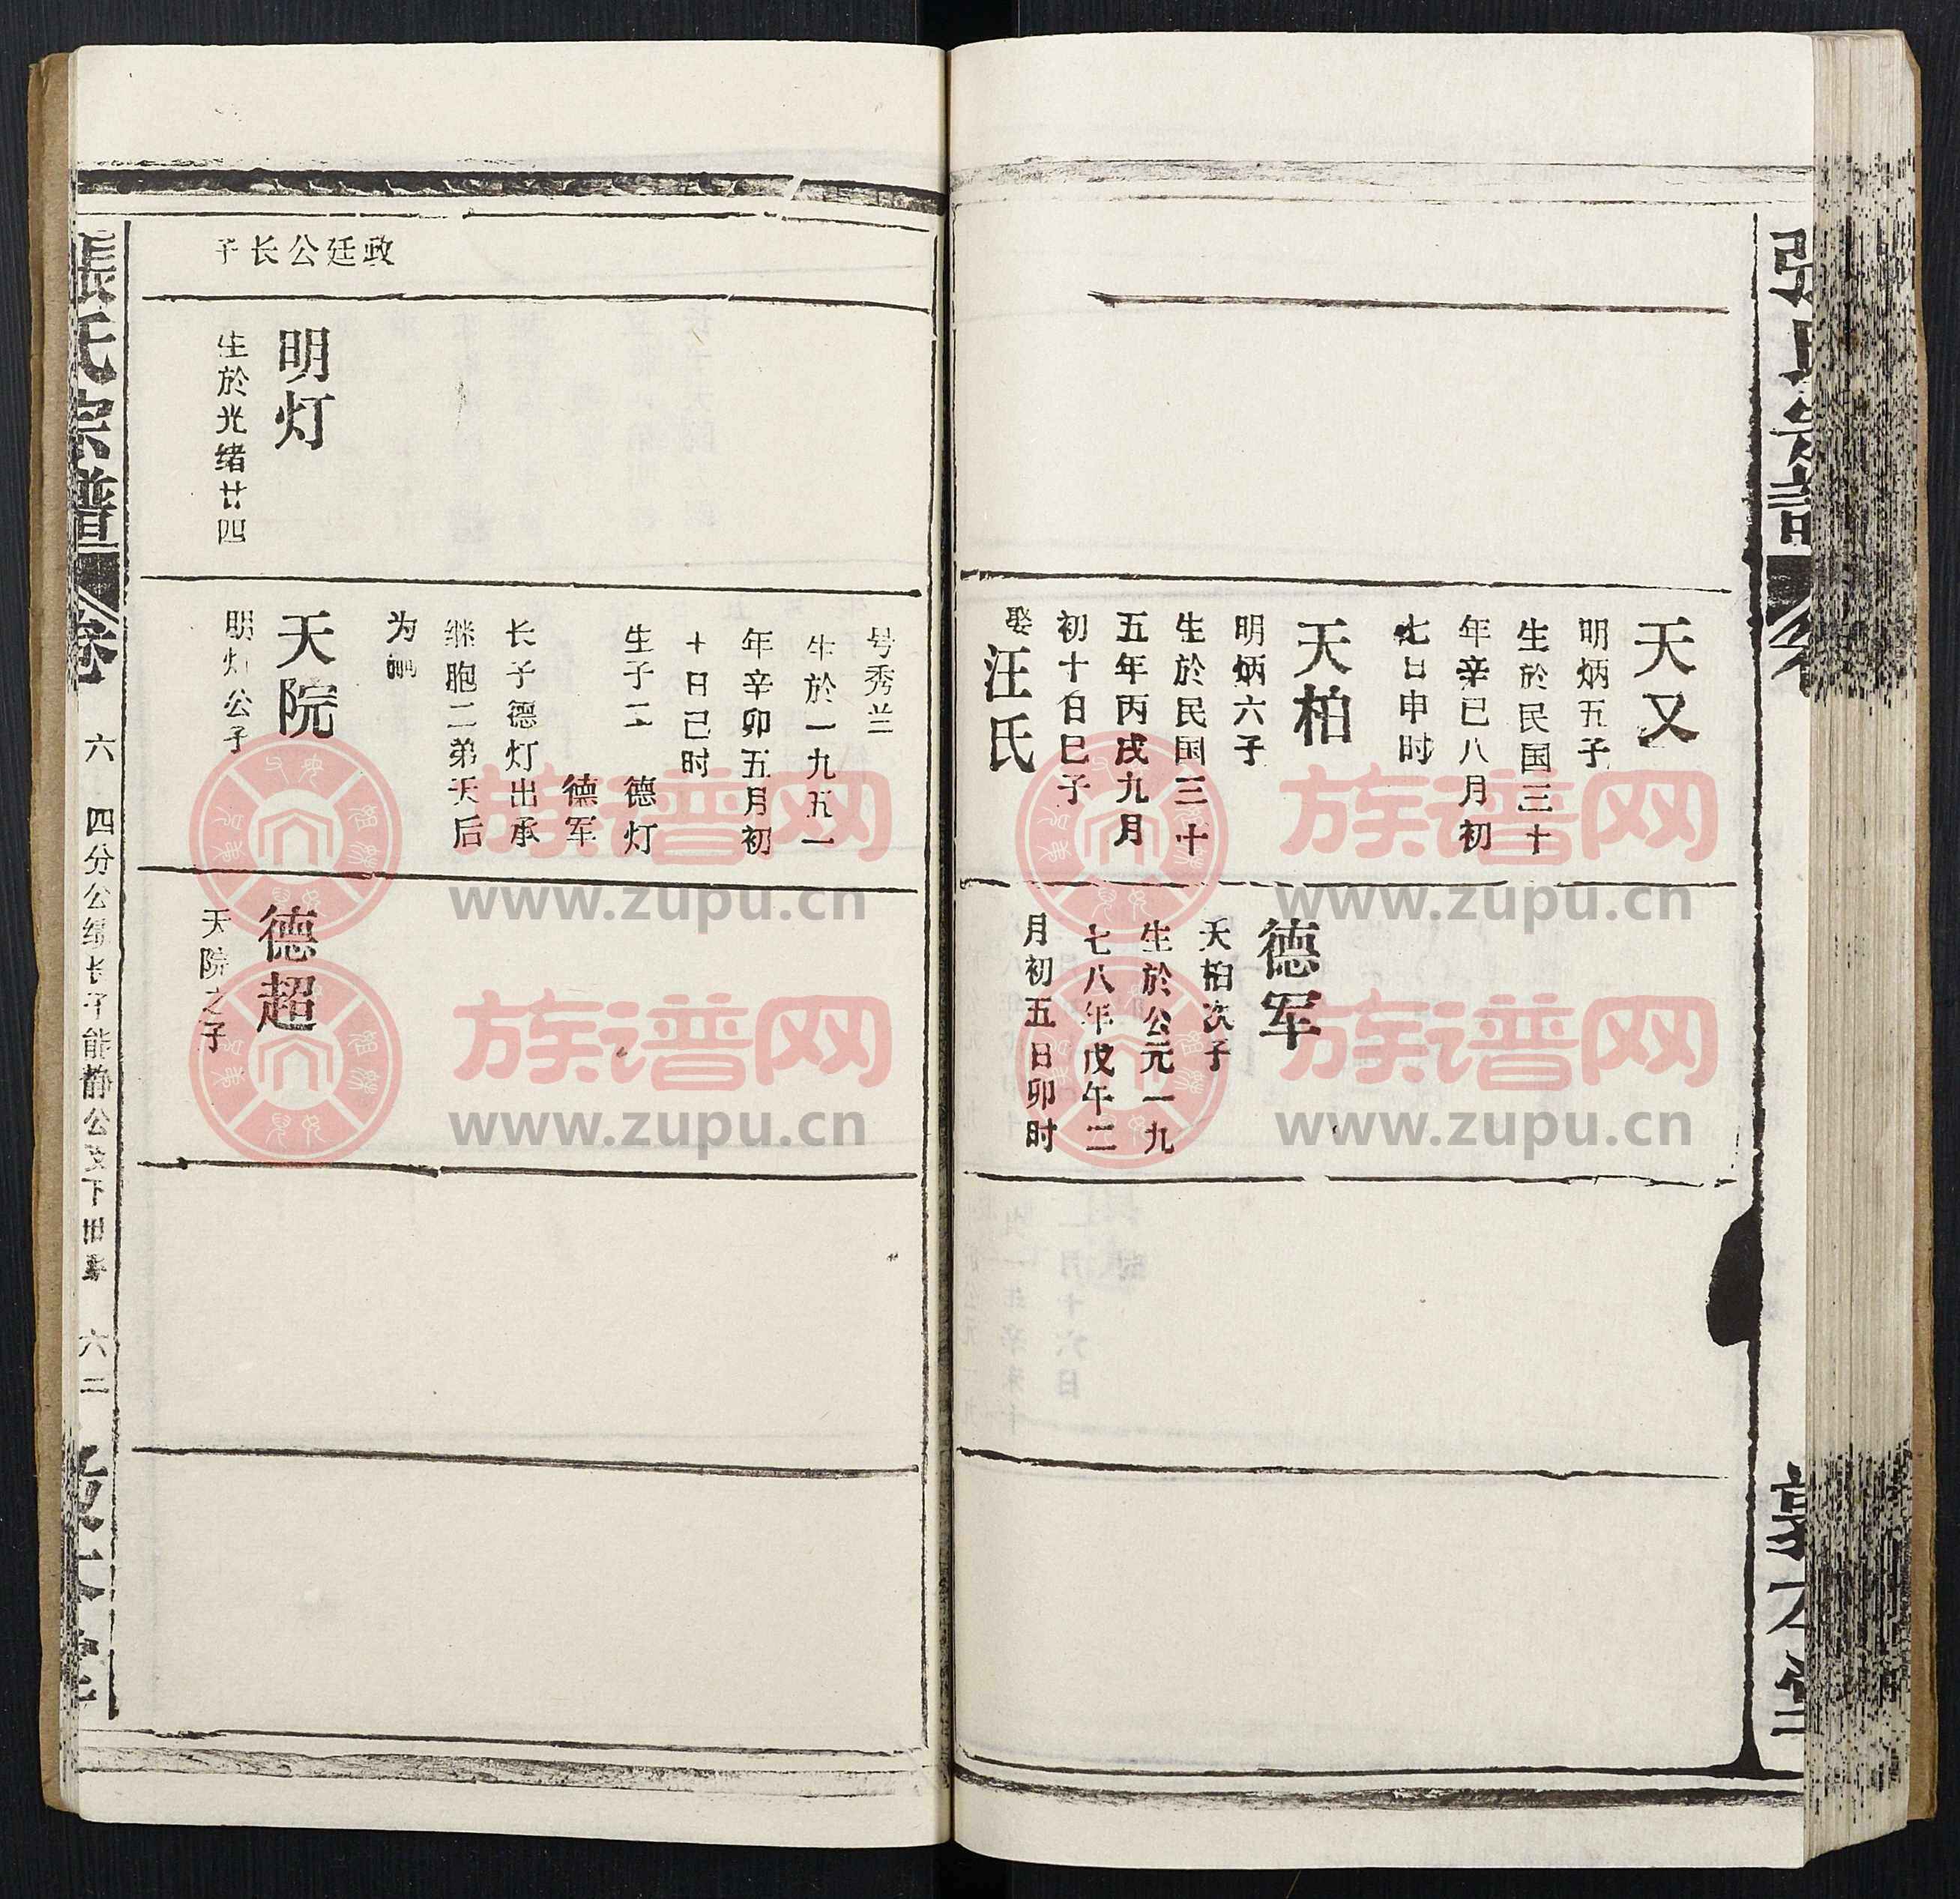 天又
明炳五子
生於民国三十
年辛已八月初
七日申时
天柏
明炳六子
生於民国三十
五年丙戌九月
初十日巳子
娶汪氏
德军
天柏次子
生於公元一九
七八年戊午二
月初五日卯时
号秀兰
生於一九五一
年辛卯五月初
十日己时
生子二 德灯
德军
长子德灯出承
继胞二弟天后
为嗣
政廷公长子
明灯
生於光绪廿四
天院
明灯公子
德超
天院之子
張氏宗譜 卷六 四分公 长子能静公支下世 六二
族谱网
www.zupu.cn
族谱网
www.zupu.cn
族谱网
www.zupu.cn
族谱网
www.zupu.cn